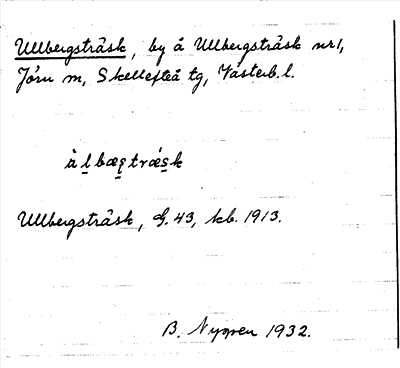 Ullbergsträsk, by å Ullbergsträsk nr1,
Jörn sn, Skellefteå tg, Västerb. l.
Ullbergsträsk, G. 43, kb. 1913.
B. Nygren 1932.